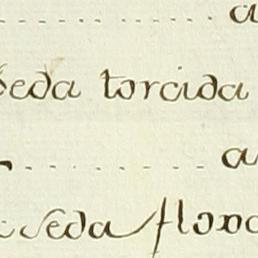 a
seda torcida
a
seda floxa